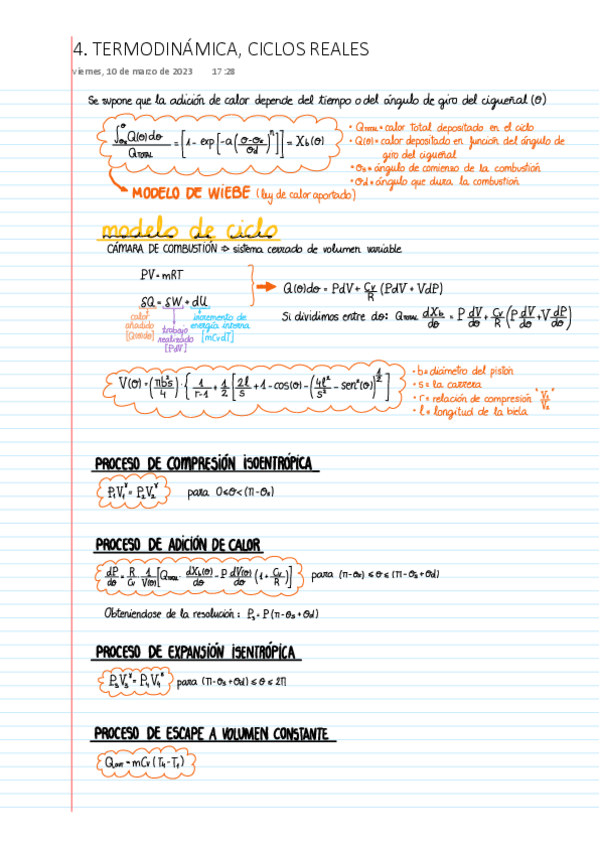 4. TERMODINÁMICA, CICLOS REALES
viernes, 10 de marzo de 2023 17:28
Se supone que la adición de calor depende del tiempo o del ángulo de giro del cigueñal (θ)
∫_{θs}^{θ} Q(θ)dθ / Q_TOTAL = [1 - exp[-a((θ-θs)/θd)^n]] = Xb(θ)
• Q_TOTAL = calor total depositado en el ciclo
• Q(θ) = calor depositado en función del ángulo de
giro del cigueñal
• θs = ángulo de comienzo de la combustión
• θd = ángulo que dura la combustión
MODELO DE WIEBE (ley de calor aportado)
modelo de ciclo
CÁMARA DE COMBUSTIÓN => sistema cerrado de volumen variable
PV = mRT
δQ = δW + dU
calor añadido [Q(θ)dθ]
trabajo realizado [PdV]
incremento de energía interna [mCvdT]
Q(θ)dθ = PdV + Cv/R (PdV + VdP)
Si dividimos entre dθ: Q_TOTAL dXb/dθ = P dV/dθ + Cv/R (P dV/dθ + V dP/dθ)
V(θ) = (πb²s/4) · {1/(r-1) + 1/2 [2l/s + 1 - cos(θ) - (4l²/s² - sen²(θ))^{1/2}]}
• b = diámetro del pistón
• s = la carrera
• r = relación de compresión "V1/V2"
• l = longitud de la biela
PROCESO DE COMPRESIÓN ISOENTRÓPICA
P₁V₁^γ = P₂V₂^γ para 0≤θ<(π-θs)
PROCESO DE ADICIÓN DE CALOR
dP/dθ = R/Cv 1/V(θ) [Q_TOTAL · dXb(θ)/dθ - P dV(θ)/dθ (1 + Cv/R)] para (π-θs) ≤ θ ≤ (π-θs+θd)
Obteniendose de la resolución: P₃ = P(π-θs+θd)
PROCESO DE EXPANSIÓN ISENTRÓPICA
P₃V₃^γ = P₄V₄^γ para (π-θs+θd) ≤ θ ≤ 2π
PROCESO DE ESCAPE A VOLUMEN CONSTANTE
Q_OUT = mCv(T₄-T₁)